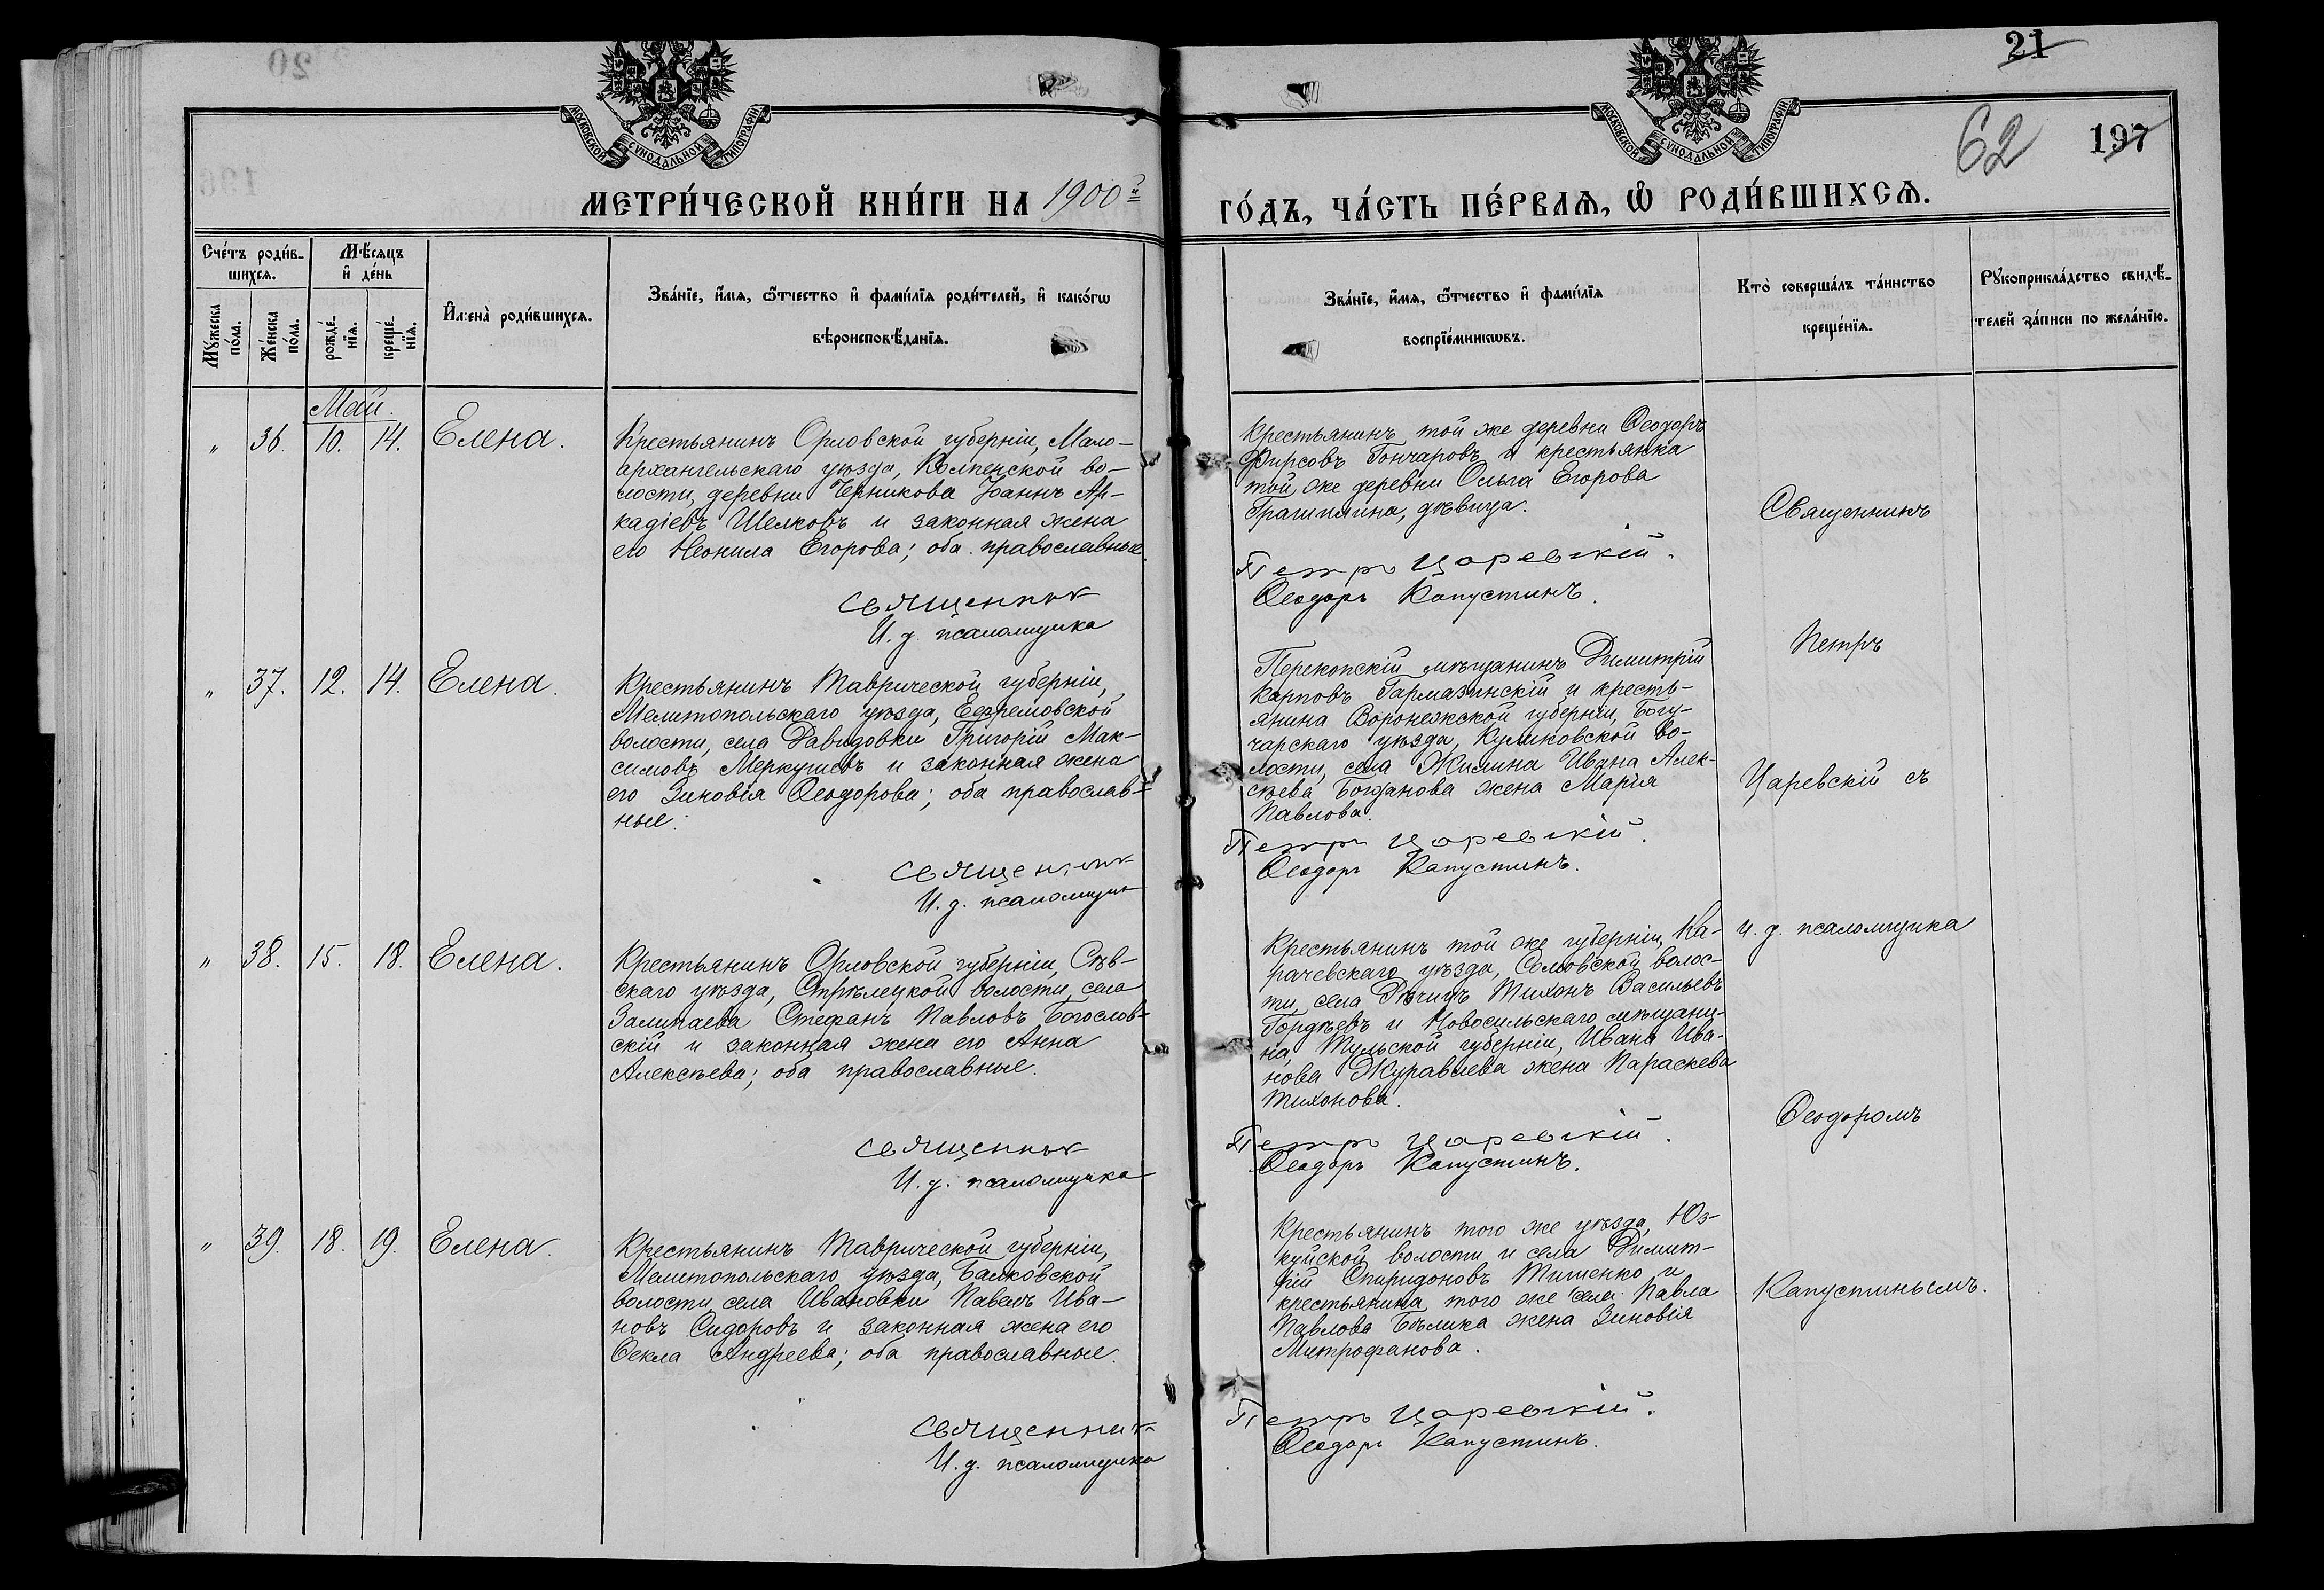 21
МОСКОВСКОЙ СѴНОДАЛЬНОЙ ТИПОГРАФІИ
МОСКОВСКОЙ СѴНОДАЛЬНОЙ ТИПОГРАФІИ
62
197
МЕТРИ́ЧЕСКОЙ КНИ́ГИ НА 1900й
ГО́ДЪ, ЧА́СТЬ ПЕ́РВАѦ, Ѡ҆ РОДИ́ВШИХСѦ.
Сче́тъ роди́в-
шихсѧ.
Мѣ́сѧцъ
и҆ де́нь
Мꙋ́жеска
по́ла.
Же́нска
по́ла.
рожде́-
нїѧ.
креще́-
нїѧ.
И҆мена̀ роди́вшихсѧ.
Зва́нїе, и҆́мѧ, ѻ҆́тчество и҆ фами́лїѧ роди́телей, и҆ како́гѡ
вѣроисповѣ́данїѧ.
Зва́нїе, и҆́мѧ, ѻ҆́тчество и҆ фами́лїѧ
воспрїе́мникѡвъ.
Кто̀ соверша́лъ та́инство
креще́нїѧ.
Рꙋкоприкла́дство свидѣ́-
телей за́писи по жела́нїю.
Май.
„ 36. 10. 14. Елена.
Крестьянинъ Орловской губерніи, Мало-
архангельскаго уѣзда, Колпенской во-
лости, деревни Черникова Іоаннъ Ар-
кадіевъ Шелковъ и законная жена
его Неонила Егорова; оба православные.
Священник
И. д. псаломщика
Крестьянинъ той же деревни Ѳеодоръ
Фирсовъ Гончаровъ и крестьянка
той же деревни Ольга Егорова
дѣвица.
Петръ Царевскій.
Ѳеодоръ Капустинъ.
„ 37. 12. 14. Елена.
Крестьянинъ Таврической губерніи,
Мелитопольскаго уѣзда, Ефремовской
волости, села Давыдовки Григорій Мак-
симовъ Меркушевъ и законная жена
его Зиновія Ѳеодорова; оба православ-
ные.
Священник
И. д. псаломщик
Перекопскій мѣщанинъ Димитрій
Карповъ Гармазинскій и кресть-
янина Воронежской губерніи, Богу-
чарскаго уѣзда, Куликовской во-
лости, села Жилина Ивана Алек-
сѣева Богданова жена Марія
Павлова.
Петръ Царевскій.
Ѳеодоръ Капустинъ.
„ 38. 15. 18. Елена.
Крестьянинъ Орловской губерніи, Сѣв-
скаго уѣзда, Стрѣлецкой волости, села
Залипаева Стефанъ Павловъ Богослов-
скій и законная жена его Анна
Алексѣева; оба православные.
Священник
И. д. псаломщика
Крестьянинъ той же губерніи, Ка-
рачевскаго уѣзда, волос-
ти, села Тихонъ Васильевъ
Гордѣевъ и Новосильскаго мѣщани-
на, Тульской губерніи, Ивана Ива-
нова Журавлева жена Параскева
Тихонова.
Петръ Царевскій.
Ѳеодоръ Капустинъ.
„ 39. 18. 19. Елена.
Крестьянинъ Таврической губерніи,
Мелитопольскаго уѣзда, Балковской
волости, села Ивановки Павелъ Ива-
новъ Сидоровъ и законная жена его
Ѳекла Андреева; оба православные.
Священник
И. д. псаломщика
Крестьянинъ того же уѣзда, Юз-
куйской волости и села Димит-
рій Спиридоновъ Тищенко и
крестьянина того же села Павла
Павлова Бѣлика жена Зиновія
Митрофанова.
Петръ Царевскій.
Ѳеодоръ Капустинъ.
Священникъ
Петръ
Царевскій съ
и. д. псаломщика
Ѳеодоромъ
Капустинымъ.